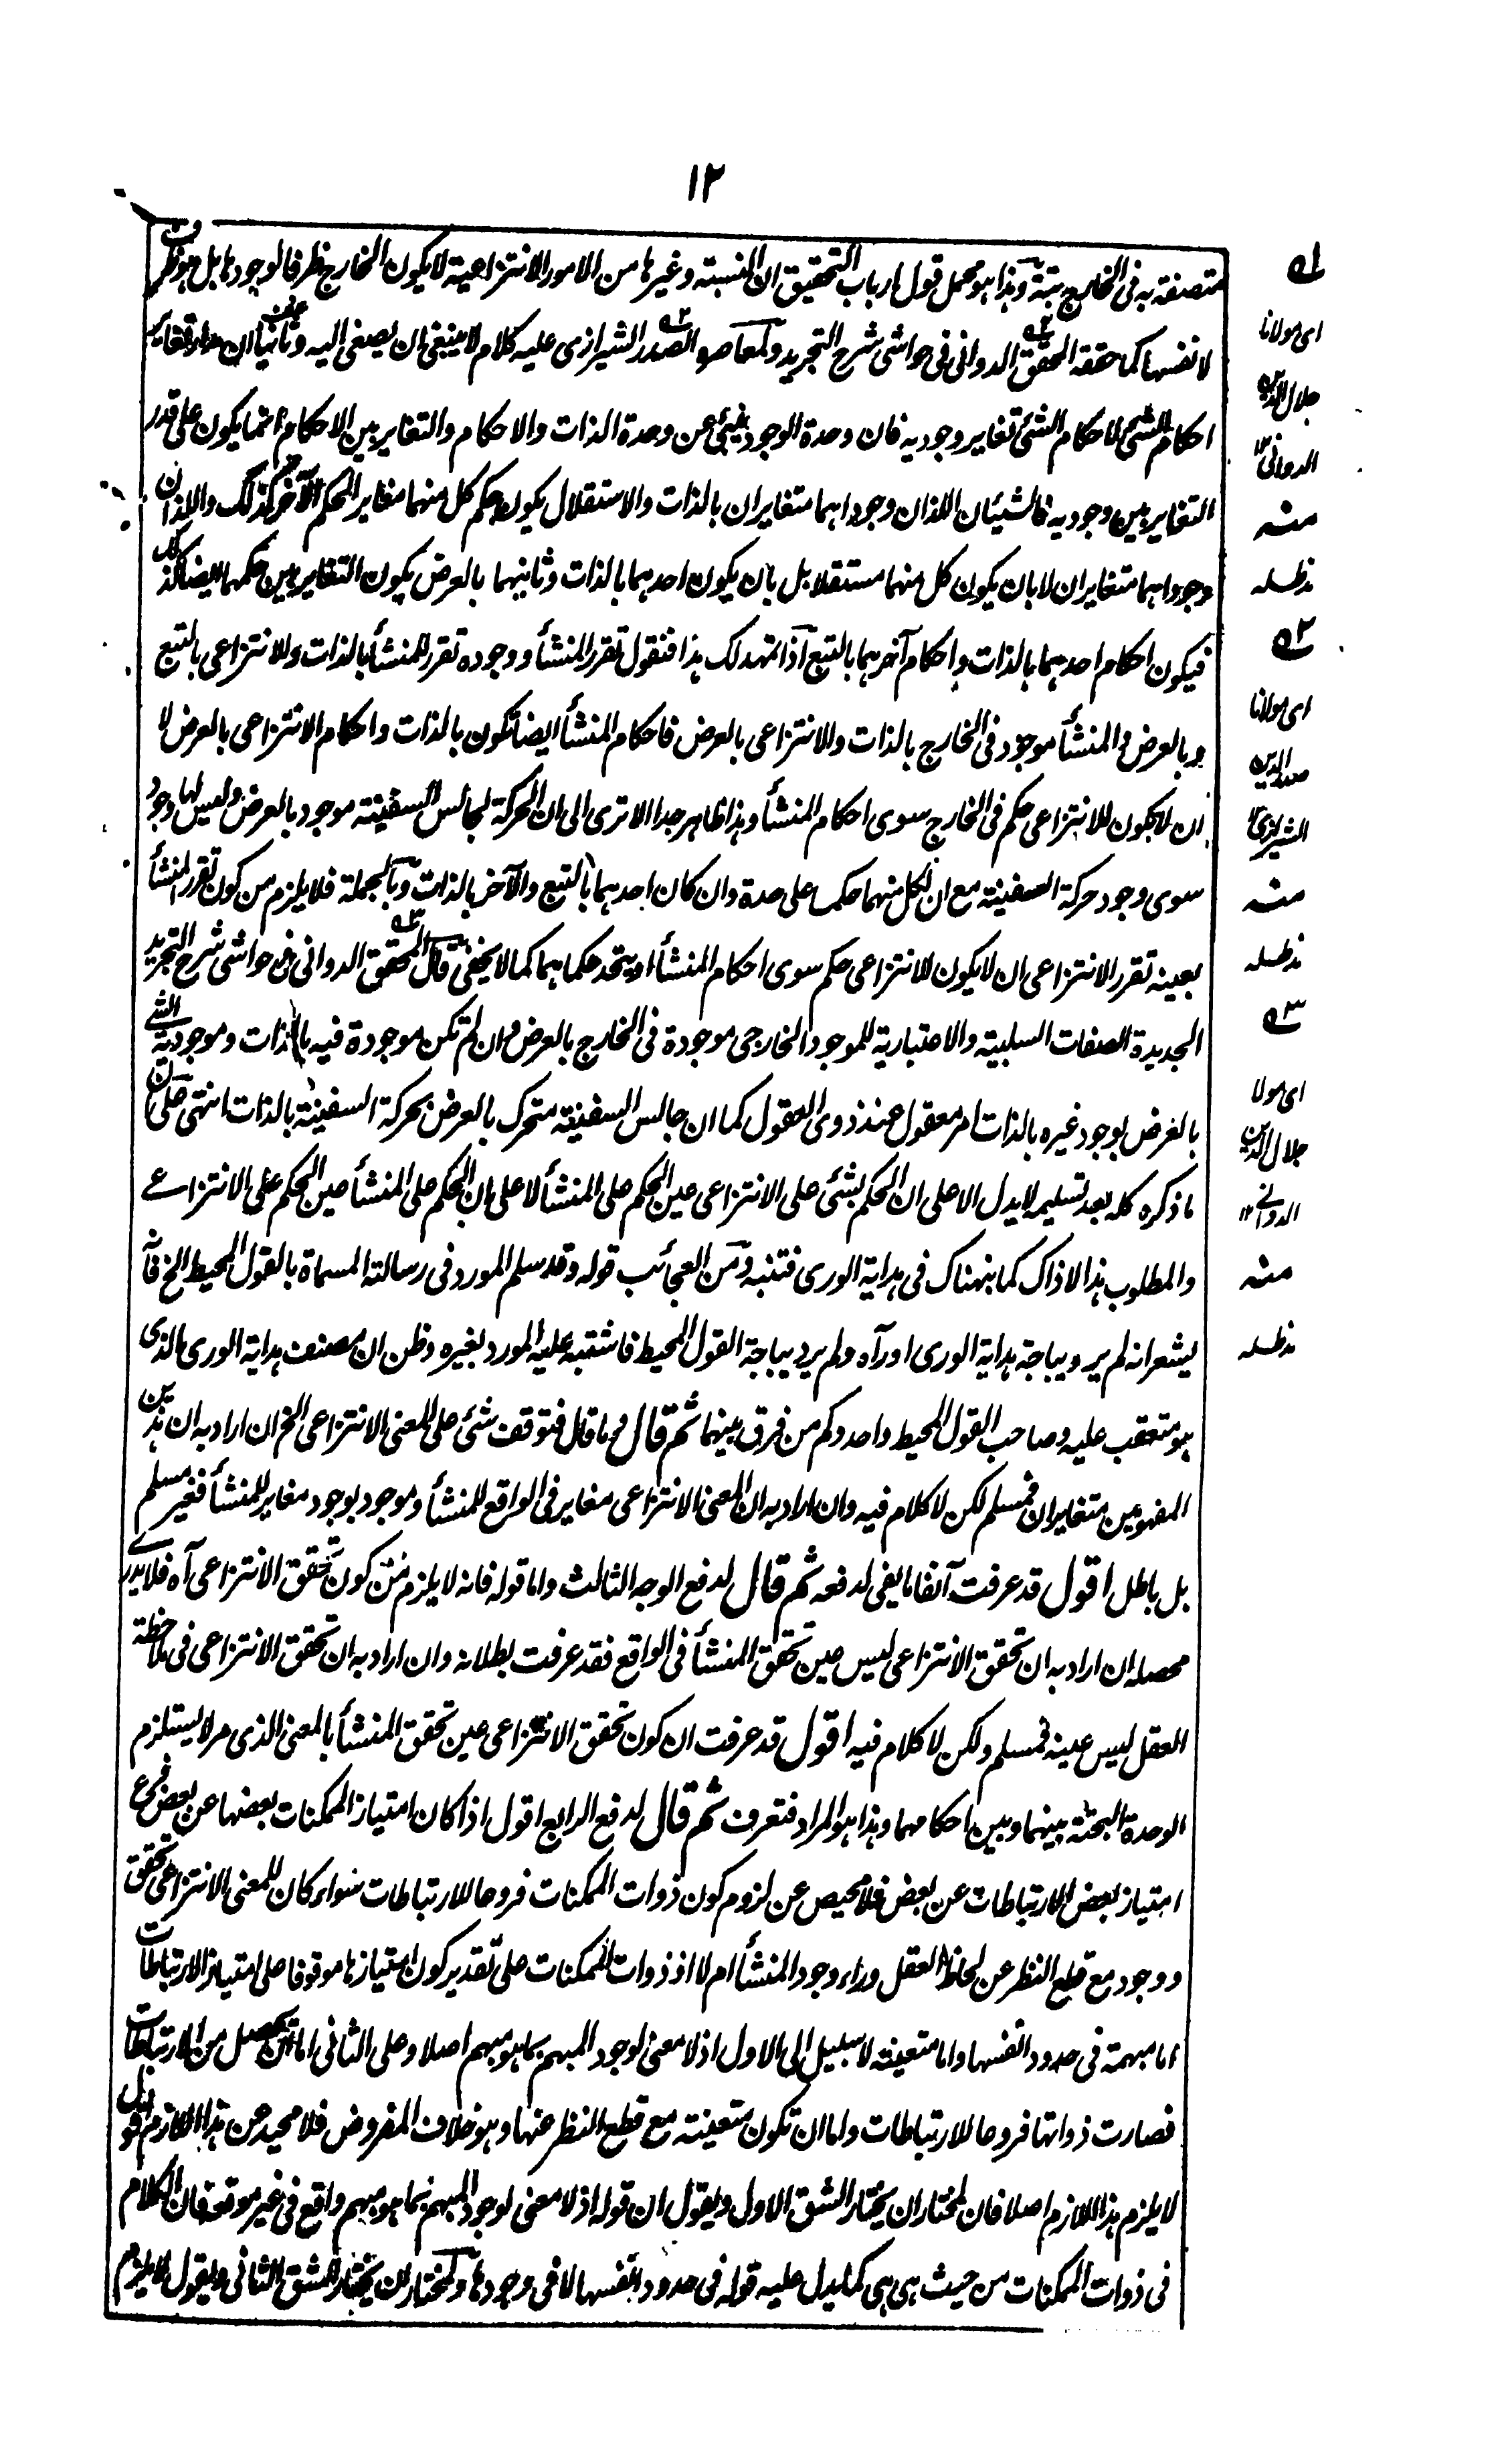 ١٢
متصفة به فى الخارج بتبعية وهذا هو محمل قول ارباب التحقيق ان النسبة وغيرها من الامور الانتزاعية لا يكون الخارج ظرفا لوجودها بل هو ظرف
لانفسها كما حققه المحقق الدوانى فى حواشى شرح التجريد ولمعاصره الصدر الشيرازى عليه كلام لا ينبغى ان يصغى اليه وثانيا ان تغاير
احكام الشئ لاحكام الشئ تغاير وجوديه فان وحدة الوجود ينبئ عن وحدة الذات والاحكام والتغاير بين الاحكام انما يكون على قدر
التغاير بين وجوديه فالشيئان اللذان وجوداهما متغايران بالذات والاستقلال يكون حكم كل منهما مغاير الحكم الآخر كذلك واللذان
وجوداهما متغايران لا بان يكون كل منهما مستقلا بل بان يكون احدهما بالذات وثانيهما بالعرض يكون التغاير بين حكمهما ايضا كذلك
فيكون احكام احدهما بالذات واحكام آخرهما بالتبع اذا تمهد لك هذا فنقول تقرر المنشأ ووجوده تقرر للمنشأ بالذات وللانتزاعى بالتبع
وبالعرض والمنشأ موجود فى الخارج بالذات والانتزاعى بالعرض فاحكام المنشأ ايضا تكون بالذات واحكام الانتزاعى بالعرض لا
ان لا يكون للانتزاعى حكم فى الخارج سوى احكام المنشأ وهذا ظاهر جدا الا ترى الى ان الحركة لجالس السفينة موجود بالعرض وليس لها وجود
سوى وجود حركة السفينة مع ان لكل منهما حكما على حدة وان كان احدهما بالتبع والآخر بالذات وبالجملة فلا يلزم من كون تقرر المنشأ
بعينه تقرر الانتزاعى ان لا يكون للانتزاعى حكم سوى احكام المنشأ او يتحد حكماهما كما لا يخفى قال المحقق الدوانى فى حواشى شرح التجريد
الجديدة الصفات السلبية والاعتبارية للموجود الخارجى موجودة فى الخارج بالعرض وان لم تكن موجودة فيه بالذات وموجودية الشئ
بالعرض بوجود غيره بالذات امر معقول عند ذوى العقول كما ان جالس السفينة متحرك بالعرض بحركة السفينة بالذات انتهى على ان
ما ذكره كله بعد تسليمه لا يدل الا على ان الحكم بشئ على الانتزاعى عين الحكم على المنشأ لا على ان الحكم على المنشأ عين الحكم على الانتزاعے
والمطلوب هذا لا ذاك كما نبهناك فى هداية الورى فتنبه ومن العجائب قوله وقد سلم المورد فى رسالته المسماة بالقول المحيط الخ فانه
يشعر انه لم ير ديباجة هداية الورى او رآه ولم ير ديباجة القول المحيط فاشتبه عليه المورد بغيره وظن ان مصنف هداية الورى الذى
هو متعقب عليه وصاحب القول المحيط واحد وكم من فرق بينهما ثم قال وما قال فتوقف شئ على المعنى الانتزاعى الخ ان اراد به ان هذين
المفهومين متغايران فمسلم لكن لا كلام فيه وان اراد به ان المعنى الانتزاعى مغاير فى الواقع للمنشأ وموجود بوجود مغاير للمنشأ فغير مسلم
بل باطل اقول قد عرفت آنفا ما يفى لدفعه ثم قال لدفع الوجه الثالث واما قوله فانه لا يلزم من كون تحقق الانتزاعى آه فلا يدرے
محصله ان اراد به ان تحقق الانتزاعى ليس عين تحقق المنشأ فى الواقع فقد عرفت بطلانه وان اراد به ان تحقق الانتزاعى فى ملاحظة
العقل ليس عينه فمسلم ولكن لا كلام فيه اقول قد عرفت ان كون تحقق الانتزاعى عين تحقق المنشأ بالمعنى الذى مر لا يستلزم
الوحدة البحتة بينهما وبين احكامهما وهذا هو المراد فتعرف ثم قال لدفع الرابع اقول اذا كان امتياز الممكنات بعضها عن بعض فرع
امتياز بعض الارتباطات عن بعض فلا محيص عن لزوم كون ذوات الممكنات فروعا للارتباطات سواء كان للمعنى الانتزاعى تحقق
ووجود مع قطع النظر عن لحاظ العقل وراء وجود المنشأ ام لا اذ ذوات الممكنات على تقدير كون امتيازها موقوفا على امتياز الارتباطات
اما مبهمة فى حدود انفسها واما متعينة لا سبيل الى الاول اذ لا معنى لوجود المبهم بما هو مبهم اصلا وعلى الثانى اما ان يحصل من الارتباطات
فصارت ذواتها فروعا للارتباطات واما ان تكون متعينة مع قطع النظر عنها وهو خلاف المفروض فلا محيد عن هذا اللازم اقول
لا يلزم هذا اللازم اصلا فان لمختار ان يختار الشق الاول ويقول ان قوله اذ لا معنى لوجود المبهم بما هو مبهم واقع فى غير موقعه فان الكلام
فى ذوات الممكنات من حيث هى هى كما يدل عليه قوله فى حدود انفسها لا فى وجودها ولمختار ان يختار الشق الثانى ويقول لا يلزم
١ه
اى مولانا
جلال الدين
الدوانى ١٢
منه
مدظله
٢ه
اى مولانا
صدر الدين
الشيرازى ١٢
منه
مدظله
٣ه
اى مولا
جلال الدين
الدوانے ١٢
منه
مدظله